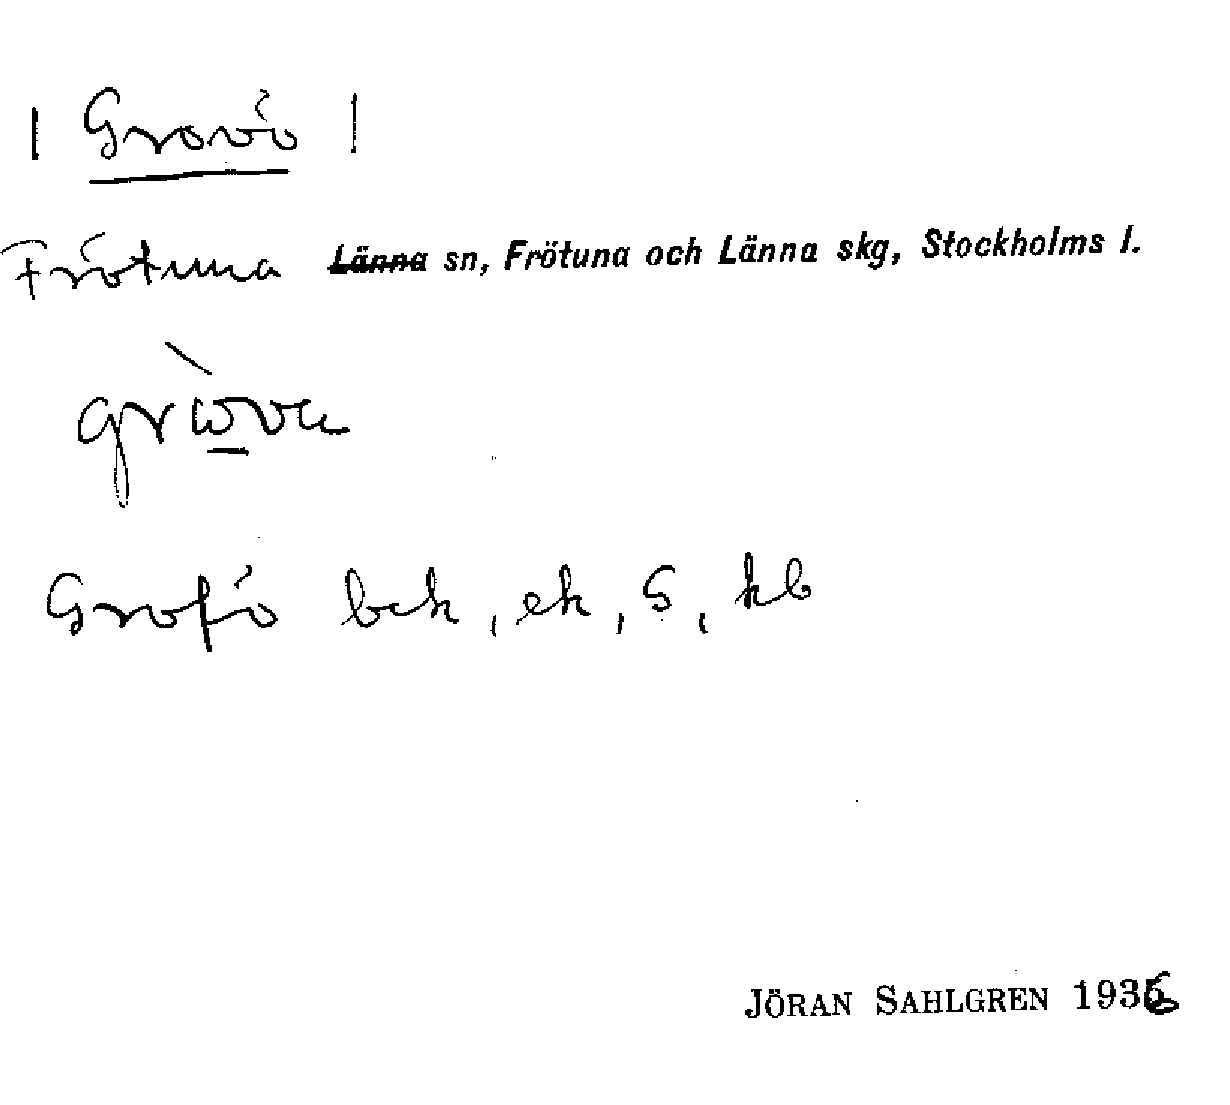 | Grovö |
Frötuna Länna sn, Frötuna och Länna skg, Stockholms l.
Grofö bck, ek, S, kb
JÖRAN SAHLGREN 1936